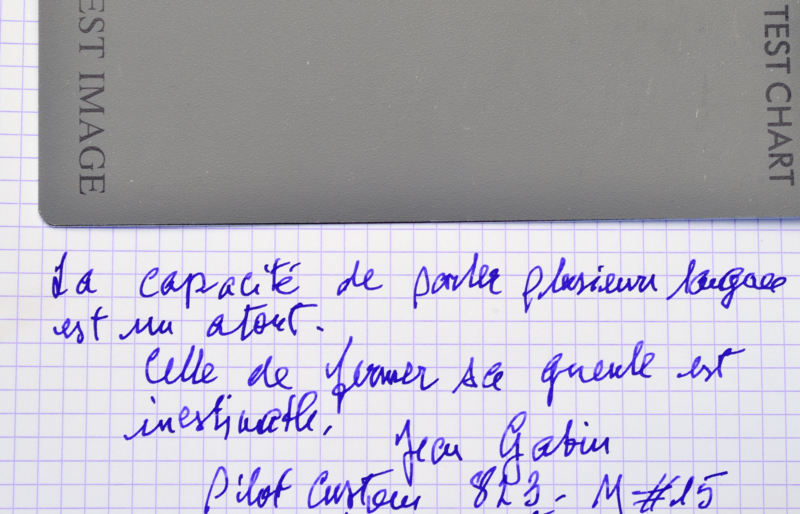 EST IMAGE
TEST CHART
La capacité de parler plusieurs langues
est un atout.
Celle de fermer sa gueule est
inestimable.
Jean Gabin
Pilot Custom 823 - M #15